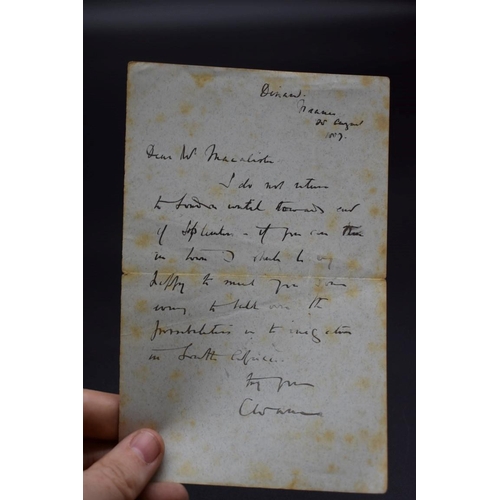 Dinard.
France
25 August
Dear Mr Macalister
I do not return
to London until towards end
of September - if you are then
in town I shall be very
happy to meet you some
to talk over the
possibilities as to
in South Africa.